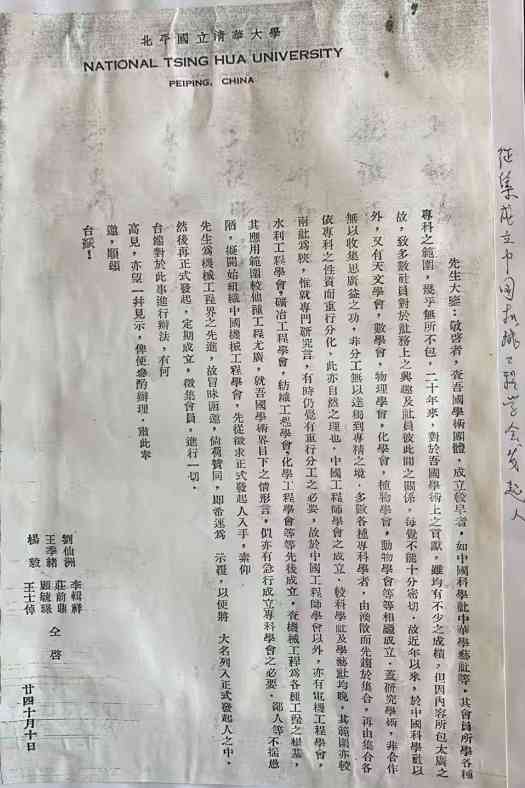 北平國立清華大學
NATIONAL TSING HUA UNIVERSITY
PEIPING, CHINA
征集成立中国机械工程学会发起人
先生大鑒：敬啓者，查吾國學術團體，成立較早者，如中國科學社中華學藝社等，其會員所學各種
專科之範圍，幾乎無所不包，二十年來，對於吾國學術上之貢獻，雖均有不少之成績，但因內容所包太廣之
故，致多數社員對於社務上之興趣及社員彼此間之關係，每覺不能十分密切．故近年以來，於中國科學社以
外，又有天文學會，數學會，物理學會，化學會，植物學會，動物學會等等相繼成立．蓋研究學術，非合作
無以收集思廣益之功，非分工無以達專精之境．多數各種專科學者，由渙散而先趨於集合，再由集合各
依專科之性質而重行分化，此亦自然之理也．中國工程師學會之成立．較科學社及學藝社均晚．其範圍亦較
兩社爲狹，惟就專門研究言，有時仍覺有重行分工之必要，故於中國工程師學會以外，亦有電機工程學會，
水利工程學會，礦冶工程學會，紡織工程學會，化學工程學會等等先後成立，查機械工程爲各種工程之根基，
其應用範圍較他種工程尤廣，就吾國學術界目下之情形言，似亦有急行成立專科學會之必要．鄙人等不揣愚
陋，擬開始組織中國機械工程學會，先從徵求正式發起人入手，素仰
先生爲機械工程界之先進，故冒昧函邀，倘荷贊同，即希逕爲 示覆，以便將 大名列入正式發起人之中．
然後再正式發起，定期成立，徵集會員，進行一切．
台端對於此事進行辦法，有何
高見，亦望一幷見示，俾便參酌辦理．肅此奉
邀，順頌
台祺！
劉仙洲 李輯祥
王季緒 莊前鼎
顧毓琇 仝啓
楊毅 王士倬
廿四十月十日